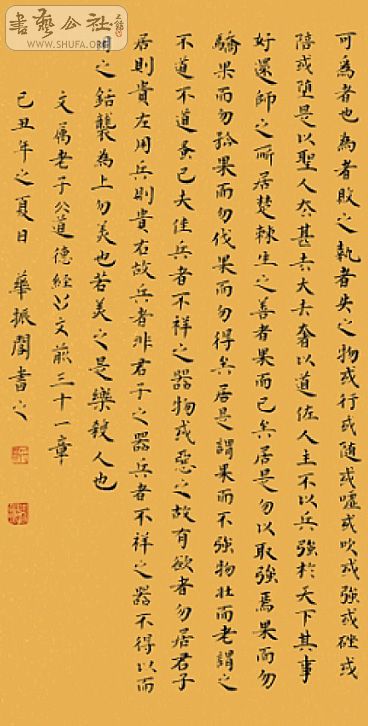 書藝公社
WWW.SHUFA.ORG
可為者也為者敗之執者失之物或行或隨或噓或吹或強或䂳或
陪或墮是以聖人去甚去大去奢以道佐人主不以兵強於天下其事
好還師之所居楚棘生之善者果而已矣居是勿以取強焉果而勿
驕果而勿矜果而勿伐果而勿得矣居是謂果而不強物壯而老謂之
不道不道蚤已夫佳兵者不祥之器物或惡之故有欲者勿居君子
居則貴左用兵則貴右故兵者非君子之器兵者不祥之器不得以而
用之銛襲為上勿美也若美之是樂殺人也
文屬老子道德經文前三十一章
己丑年之夏日 華振書之